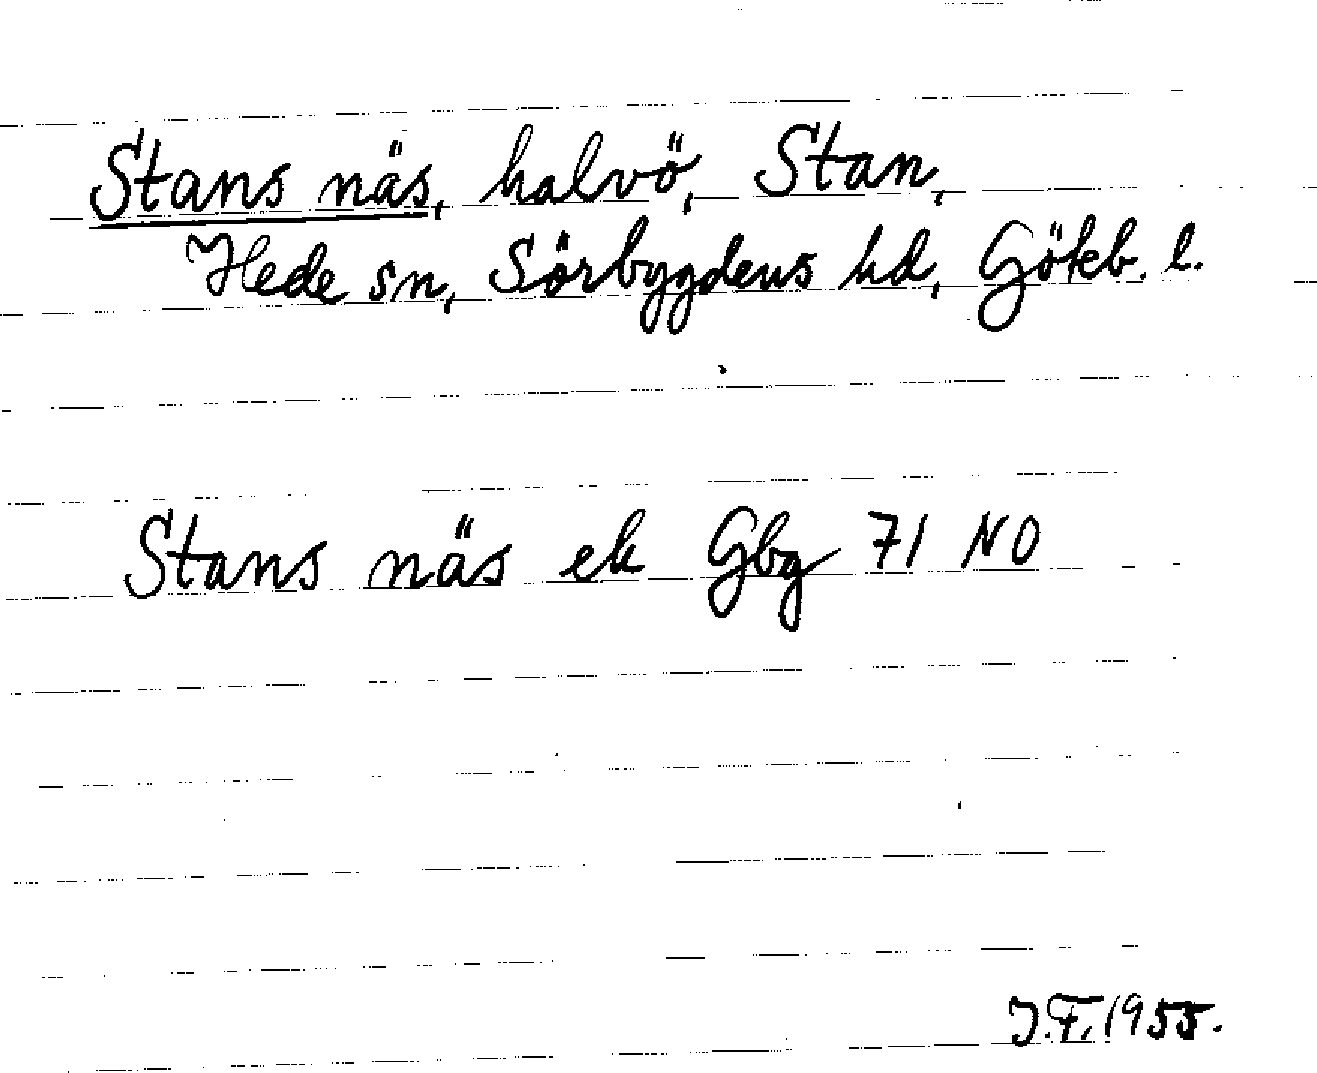 Stans näs, halvö, Stan,
Hede sn, Sörbygdens hd, Göteb. l.
Stans näs ek Gbg 71 NO
J.F. 1955.